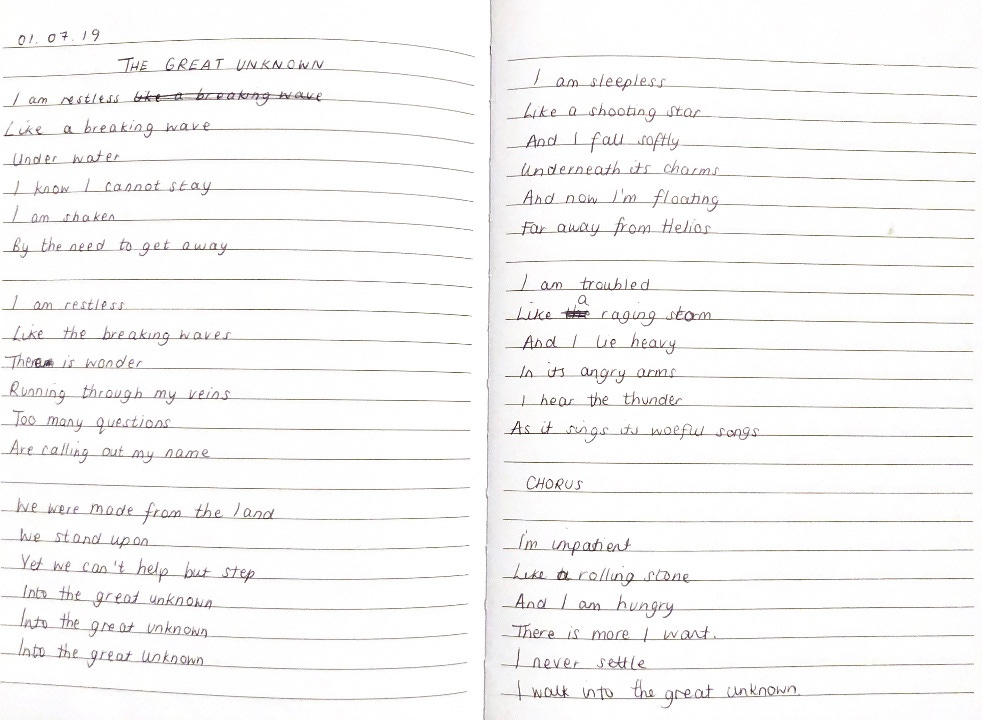 01.07.19
THE GREAT UNKNOWN
I am restless like a breaking wave
Like a breaking wave
Under water
I know I cannot stay
I am shaken
By the need to get away
I am restless
Like the breaking waves
There is wonder
Running through my veins
Too many questions
Are calling out my name
We were made from the land
We stand upon
Yet we can't help but step
Into the great unknown
Into the great unknown
Into the great unknown
I am sleepless
Like a shooting star
And I fall softly
Underneath its charms
And now I'm floating
Far away from Helios
I am troubled
Like the a raging storm
And I lie heavy
In its angry arms
I hear the thunder
As it sings its woeful songs
CHORUS
I'm impatient
Like a rolling stone
And I am hungry
There is more I want.
I never settle
I walk into the great unknown.